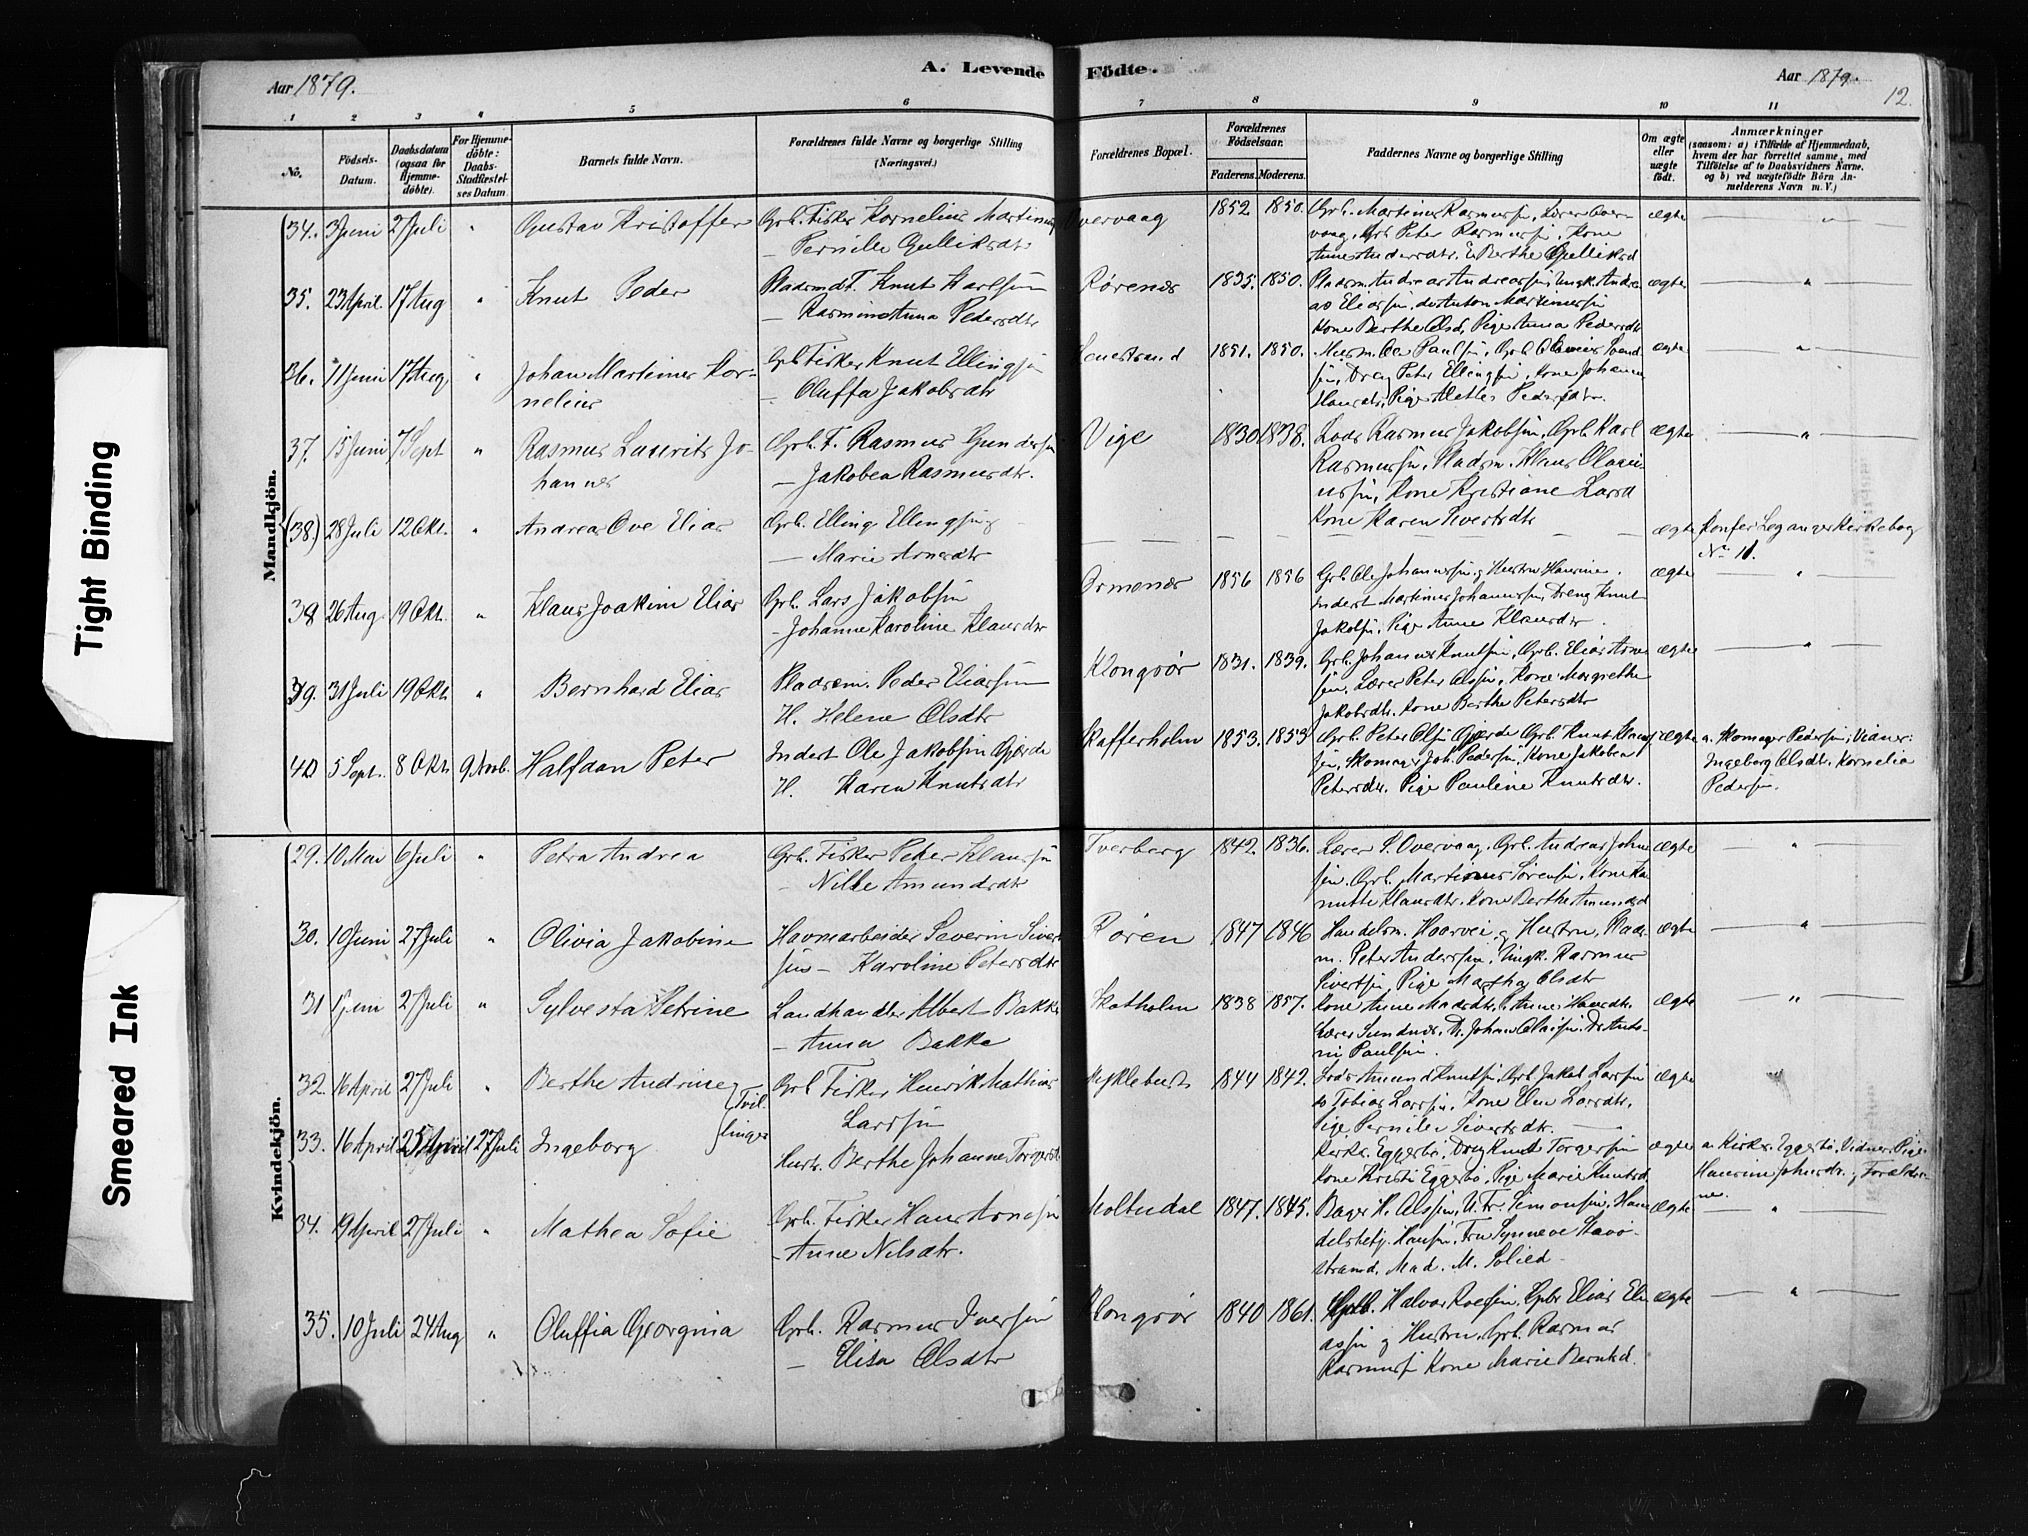 A. Levende Födte.
Aar 1879.
Aar 1879.
12.
1 2 3 4 5 6 7 8 9 10 11
No.
Födsels-Datum.
Daabsdatum (ogsaa for Hjemme-döbte).
For Hjemme-döbte: Daabs-Stadfæstel-ses Datum.
Barnets fulde Navn.
Forældrenes fulde Navne og borgerlige Stilling (Næringsvei.)
Forældrenes Bopæl.
Forældrenes Födselsaar.
Faderens. Moderens.
Faddernes Navne og borgerlige Stilling
Om ægte eller uægte födt.
Anmærkninger
(saasom: a) i Tilfælde af Hjemmedaab, hvem der har forrettet samme, med Tilföielse af to Daabsvidners Navne, og b) ved uægtefödte Börn An-melderens Navn m. V.)
Mandkjön.
34. 3 Juni 2 Juli " Gustav Kristoffer
Grb. Fisker Kornelius Martinus
– Pernille Gulliksdtr
Overvaag 1852 1850.
Grb. Martinus Rasmussn, Lærer Over-
vaag, Grb Peter Rasmussn, Kone
Anne Andersdtr, E Berthe Gulliksd
ægte "
35. 23 April 17 Aug " Knut Peder
Pladsmd F. Knut Karlsen
– Rasmine Anna Pedersdtr
Rørenes 1835. 1850.
Pladsm. Andreas Andreassn, Ungk. Andre
as Eliassn, do Anton Martinussn
Kone Berthe Olsd, Pige Anna Pedersdtr
ægte "
36. 11 Juni 17 Aug " Johan Martinus Kor-
nelius
Grb Fisker Knut Ellingsn
– Oluffa Jakobsdtr
1851. 1850.
Murm. Ole Paulsn, Grb.
sn, Dreng Peter Ellingsn, Kone Johanne
Hansdtr, Pige Alethe Pedersdtr.
ægte "
37. 15 Juni 7 Sept " Rasmus Laurits Jo-
hannes
Grb. F. Rasmus Gundersn
– Jakobea Rasmusdtr.
Vige 1830 1838.
Lods Rasmus Jakobsn, Grb. Karl
Rasmussn, Pladsm. Klaus Olaus-
ussn, Kone Kristiane Larsd
Kone Karen Sivertsdtr
ægte "
(38.) 28 Juli 12 Okt. " Andreas Ove Elias
Grb. Elling Ellingsn
– Marie Arnesdtr
ægte Konfer Leganger Kirkebog
No 11.
38 26 Aug. 19 Okt. " Klaus Joakim Elias
Grb. Lars Jakobsn
– Johanne Karoline Klausdtr
Ormenæs 1856 1856
Grb. Ole Johannessn og Hustru Hansine.
Inderst Martinus Johannessn, Dreng Knut
Jakobsn, Pige Anne Klausdtr.
ægte "
39. 31 Juli 19 Okt. " Bernhard Elias
Pladsm. Peder Eliassen
H. Helene Olsdtr
Klongsør 1831. 1839.
Grb. Johannes Knutsn, Grb. Elias Arne
sn, Lærer Peter Olsn, Kone Margrethe
Jakobsdtr. Kone Berthe Petersdtr
ægte "
40 5 Sept. 8 Okt. 9 Novb. Halfdan Peter
Inderst Ole Jakobsn Gjerde
H. Karen Knutsdtr
Kafferholm 1853. 1853
Grb. Peter Olsn Gjerde Grb. Knut Klaus
sn, Skomager Joh. Pedersn, Kone Jakobea
Petersdtr. Pige Pauline Knutsdtr.
ægte a. Skomager Pedersn; Vidner:
Ingeborg Olsdtr. Kornelia
Pedersn.
Kvindekjön.
29. 10 Mai 6 Juli " Petra Andrea
Grb. Fisker Peter Klaussn
– Nille Amundsdtr
Tverberg 1842. 1836.
Lærer P. Overvaag, Grb. Andreas Johne
sn. Grb. Martinus Sørensn, Kone Ka
nutte Klausdtr. Kone Berthe Amundsd
ægte "
30. 10 Juni 27 Juli " Olivia Jakobine
Havnearbeider Severin Siver
sen – Karoline Petersdtr
Røren 1847 1846
Handelsm. Haarvei og Hustru, Plads
m. Peter Anderssn, Ungk. Rasmus
Sivertsn, Pige Martha Olsdtr
ægte "
31 1 Juni 27 Juli " Sylvesta Petrine
Landhandler Albert Bakke
– Anna Bakke
Skotholm 1838 1857.
Kone Anne Madsdtr, P. Anne Hansdtr.
Lærer Sundnes, Dr. Johan Olaisn, Dr Anto-
ni Paulsn.
ægte "
32. 16 April 27 Juli " Berthe Andrine
Grb Fisker Henrik Mathias
Larssn
Myklebust 1844 1842.
Lods Amund Knutsn, Grb Jakob Larssn
do Tobias Larssn, Kone Elen Larsdtr,
Pige Pernille Sivertsdtr.
ægte
Tvil-
linger
33. 16 April 25 April 27 Juli Ingeborg
Hustr. Berthe Johanne Torgersd
Kirks. Eggesbø, Dreng Knut Torgersen
Kone Kristi Eggesbø, Pige Marie Knutsd.
ægte a. Kirks. Eggesbø, Vidner Pige
Hansine Johnsdtr. og Forældre-
ne.
34. 19 April 27 Juli " Mathea Sofie
Grb. Fisker Hans Arnesn
– Anne Nilsdtr.
Moltudal 1847. 1845.
Bager H. Olssn, U. Tr. Simonsen, Han
delsbetj. Hansn, Fru Synneve Havø-
strand, Mad. M. Solied
ægte "
35. 10 Juli 24 Aug " Oluffia Georgina
Grb. Rasmus Iversen
– Elisa Olsdtr
Klongsør 1840 1861.
Grb. Halvor Roelsn, Gbr Elias Eli
assn og Hustru, Grb. Rasmus
Rasmussn Kone Marie Berntsd.
ægte "
Tight Binding
Smeared Ink